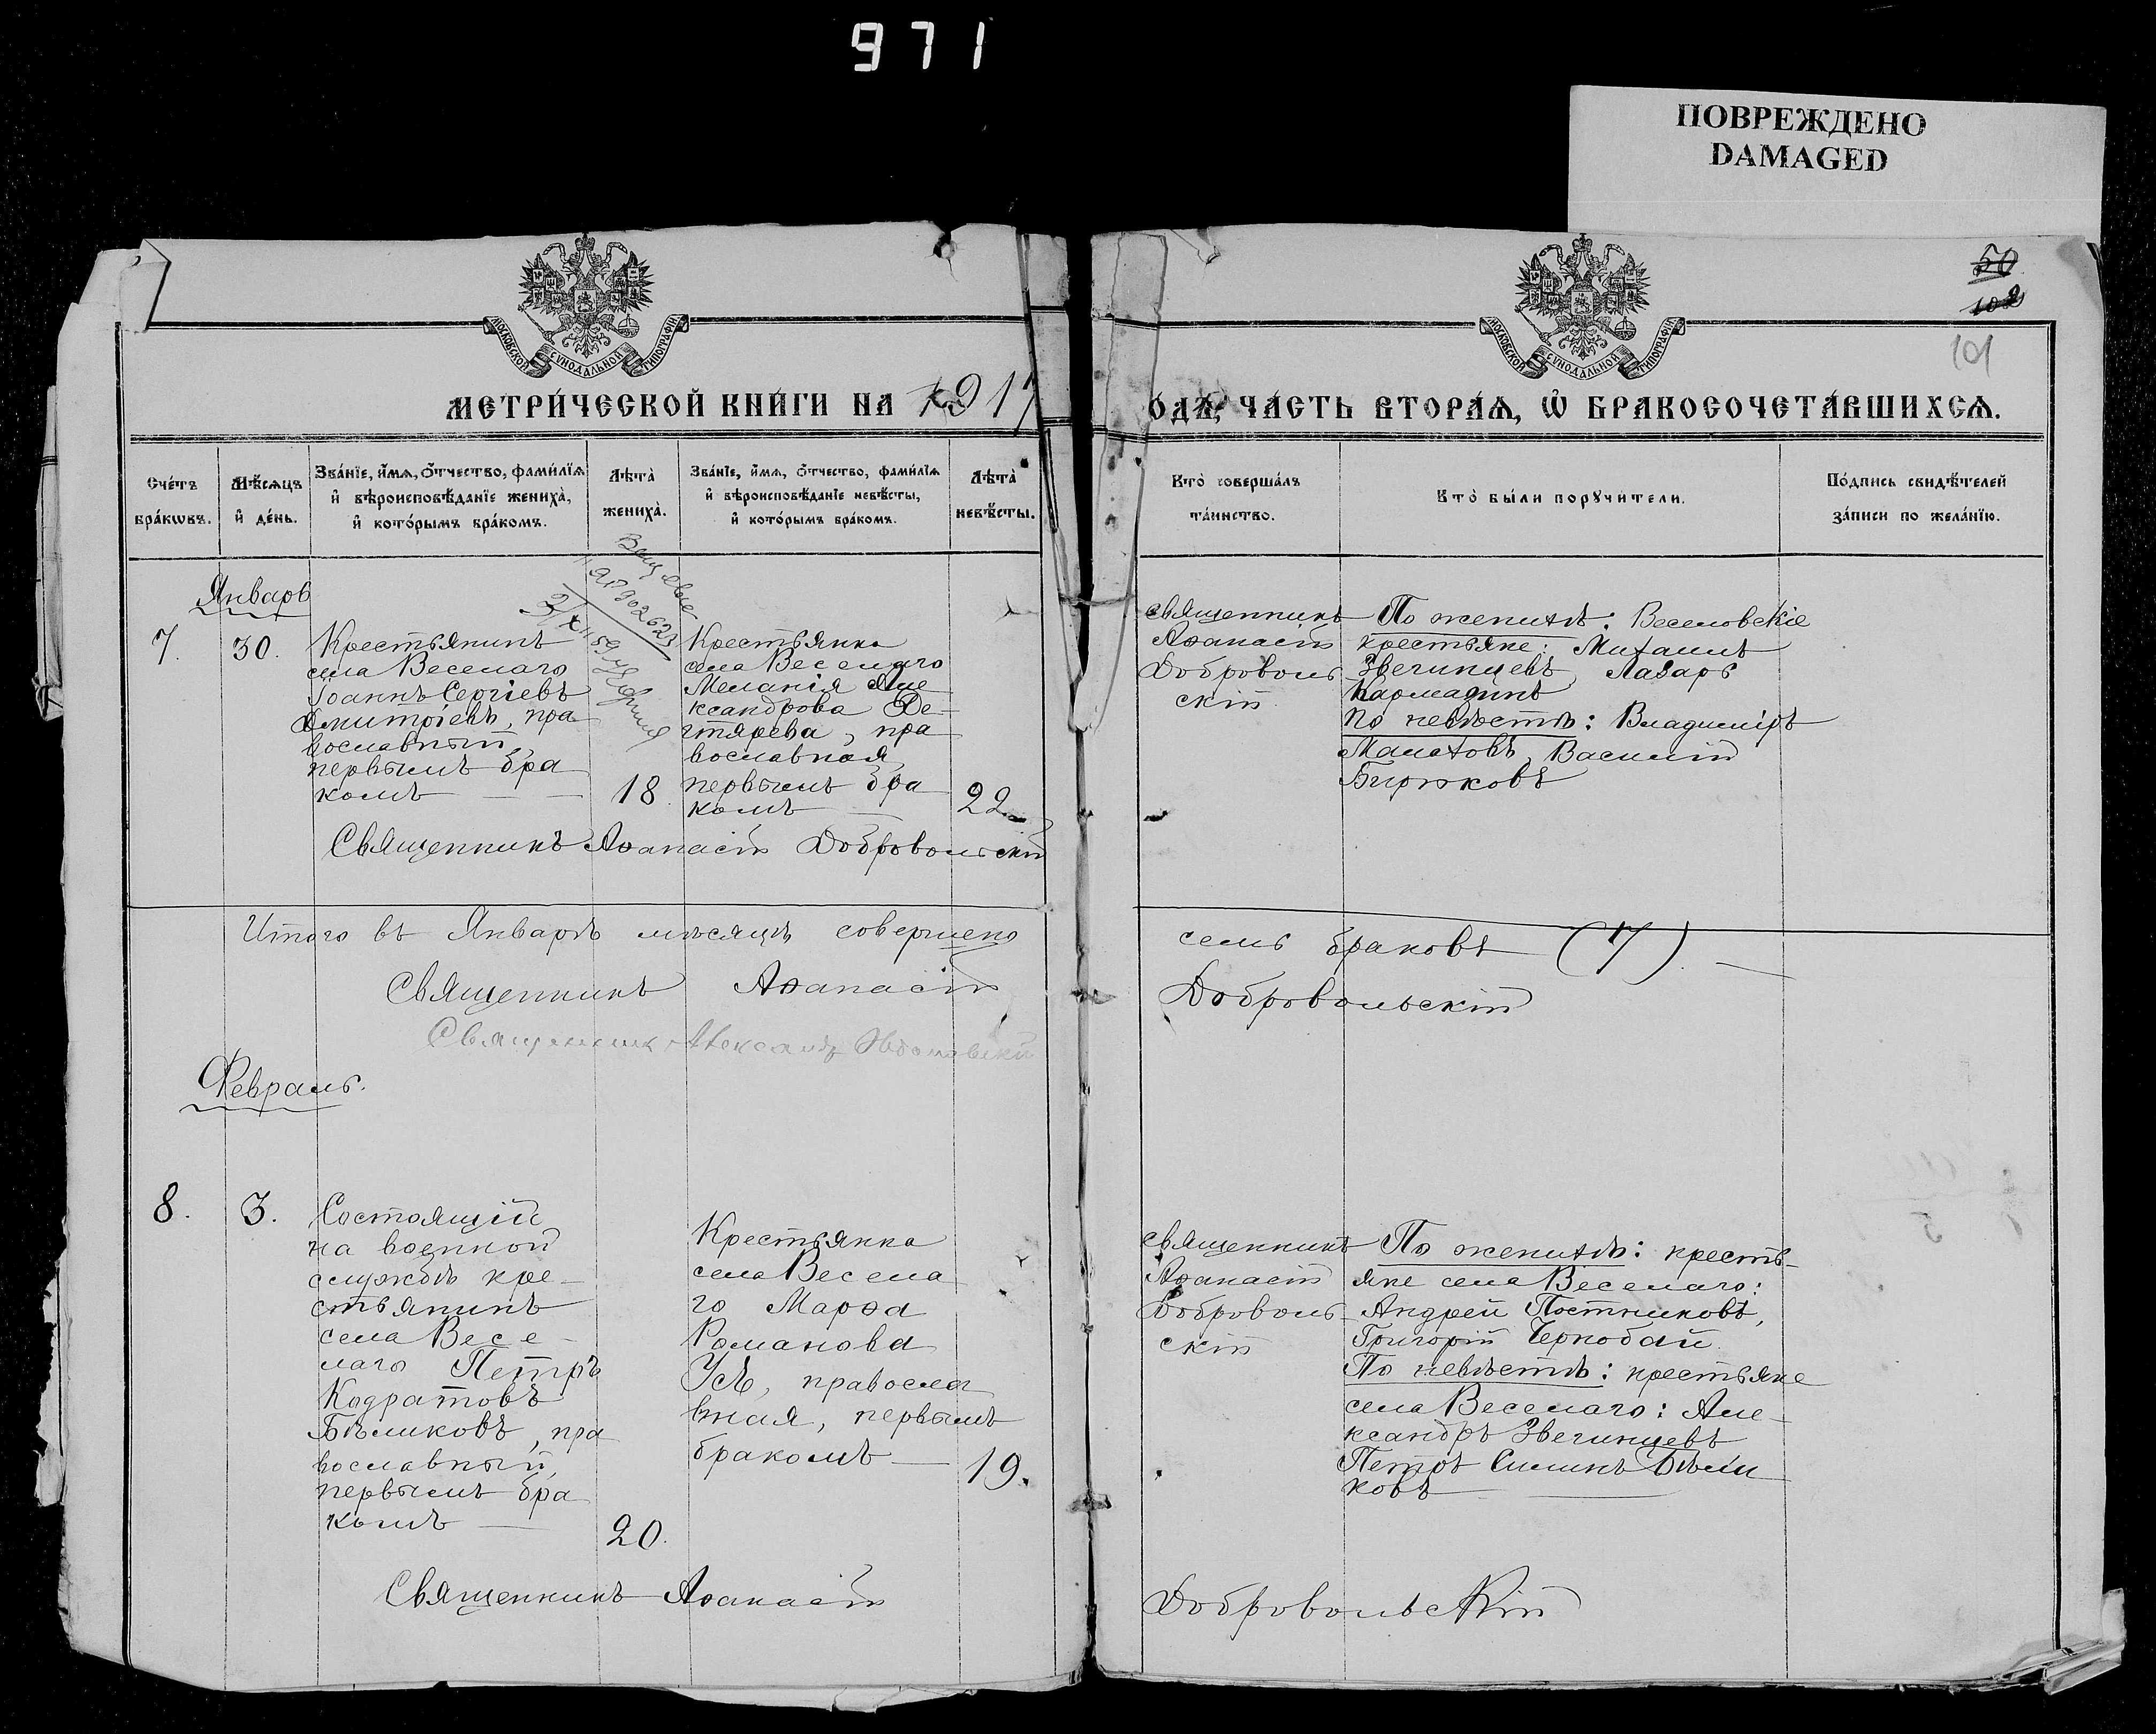 971
ПОВРЕЖДЕНО
DAMAGED
50
102
101
МОСКОВСКОЙ СѴНОДАЛЬНОЙ ТИПОГРАФІИ
МОСКОВСКОЙ СѴНОДАЛЬНОЙ ТИПОГРАФІИ
МЕТРИ́ЧЕСКОЙ КНИ́ГИ НА 1917
ОДЪ, ЧА́СТЬ ВТОРА́Ѧ, Ѡ҆ БРАКОСОЧЕТА́ВШИХСѦ.
Сче́тъ
бра́кѡвъ.
Мѣ́сѧцъ
и҆ де́нь.
Зва́нїе, и҆́мѧ, ѻ҆́тчество, фами́лїѧ
и҆ вѣроисповѣ́данїе жениха̀,
и҆ кото́рымъ бра́комъ.
Лѣ̑та
жениха̀.
Зва́нїе, и҆́мѧ, ѻ҆́тчество, фами́лїѧ
и҆ вѣроисповѣ́данїе невѣ́сты,
и҆ кото́рымъ бра́комъ.
Лѣ̑та
невѣ́сты.
Кто̀ соверша́лъ
та́инство.
Кто̀ бы́ли порꙋчи́тели.
По́дпись свидѣ́телей
за́писи по жела́нїю.
Январь
7.
30.
Крестьянинъ
села Веселаго
Іоаннъ Сергіевъ
Дмитріевъ, пра
вославный,
первымъ бра
комъ
18
Крестьянка
села Веселаго
Меланія Але
ксандрова Де-
гтярева, пра
вославная,
первымъ бра
комъ
22.
священникъ
Аѳанасій
Доброволь
скій
По женихѣ: Веселовскіе
крестьяне: Михаилъ
Звегинцевъ, Лазарь
Кармадинъ
По невѣстѣ: Владиміръ
Малаховъ, Василій
Бирюковъ
Священникъ Аѳанасій Добровольскій
Итого въ Январѣ мѣсяцѣ совершено
семь браковъ (7).
Священникъ Аѳанасій
Добровольскій
Священник Александр
Февраль.
8.
3.
Состоящій
на военной
службѣ кре-
стьянинъ
села Весе-
лаго Петръ
Кодратовъ
Бѣликовъ, пра
вославный,
первымъ бра
комъ
20.
Крестьянка
села Весела
го Марѳа
Романова
Усъ, правосла
вная, первымъ
бракомъ
19.
священникъ
Аѳанасій
Доброволь
скій
По женихѣ: кресть-
яне села Веселаго:
Андрей Постниковъ,
Григорій Чернобай.
По невѣстѣ: крестьяне
села Веселаго: Але-
ксандръ Звегинцевъ
Петръ Силинъ Бѣли
ковъ
Священникъ Аѳанасій
Добровольскій